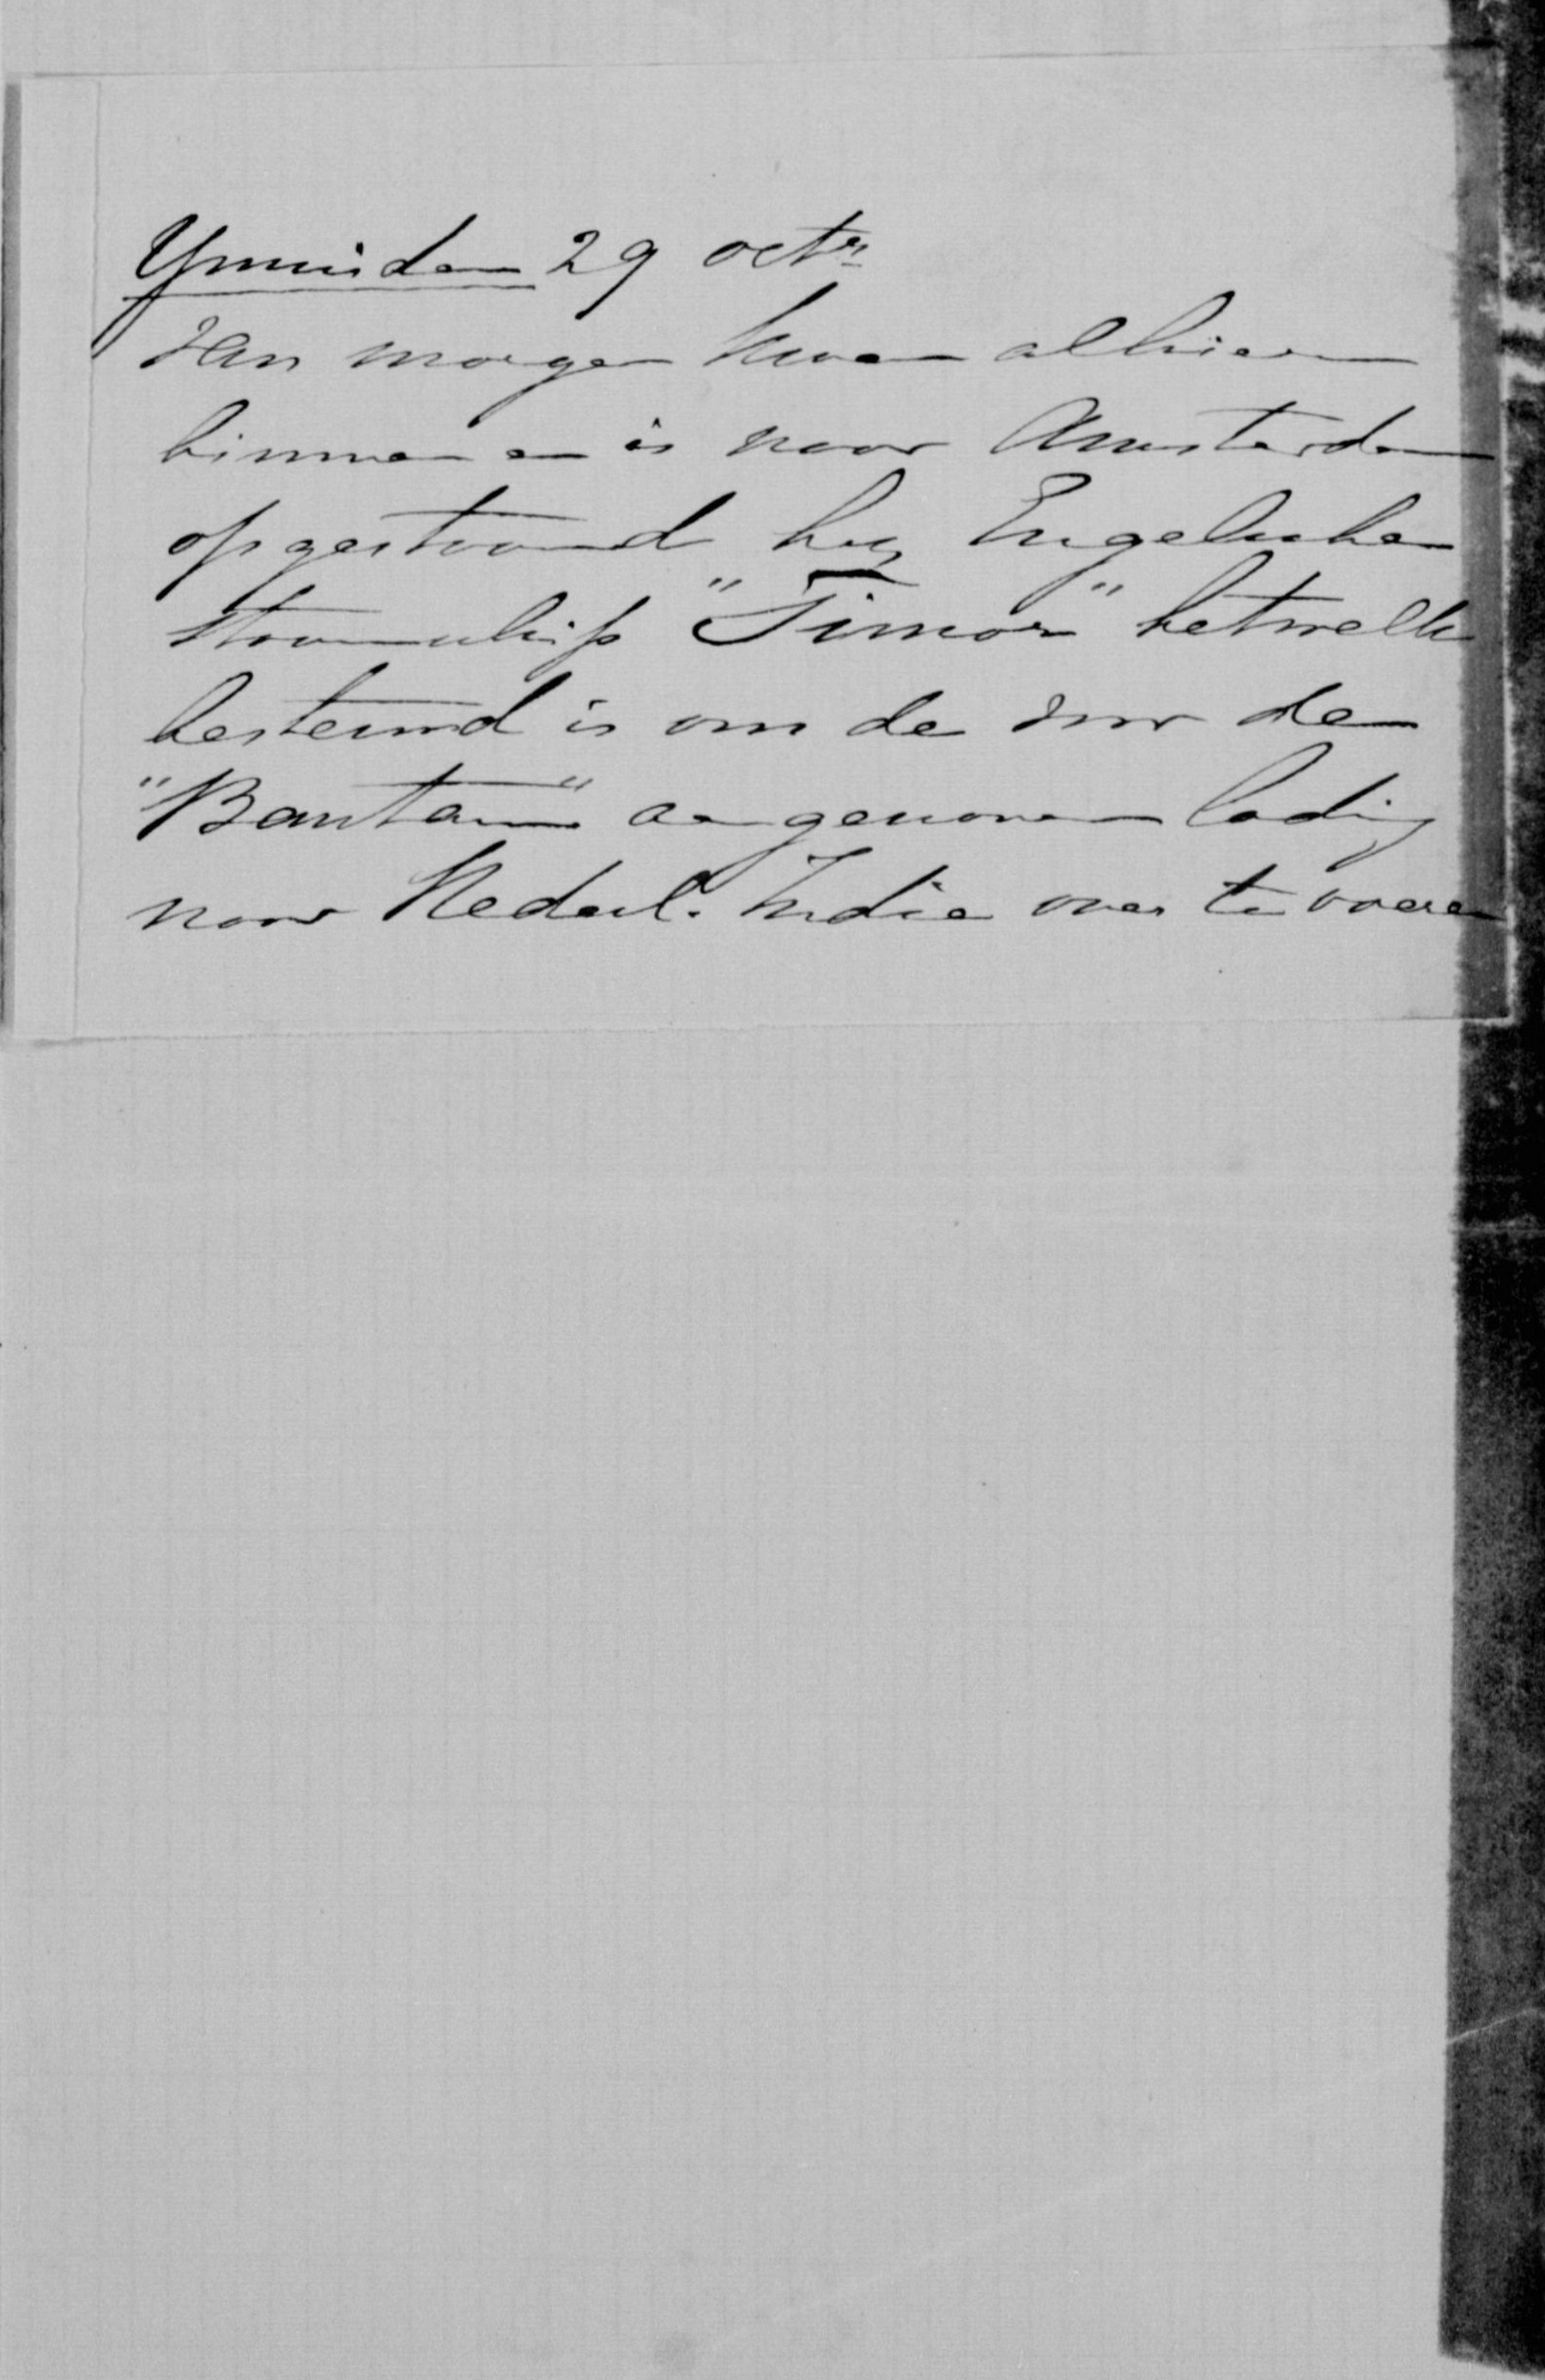 Ymuiden 29 octr
van morgen kwam alhier
binnen en is naar Amsterdam
opgestoomd het Engelsche
stoomschip "Timor" hetwelk
bestemd is om de voor de
"Bantam" aangenomen lading
naar Nederl. Indie over te voeren